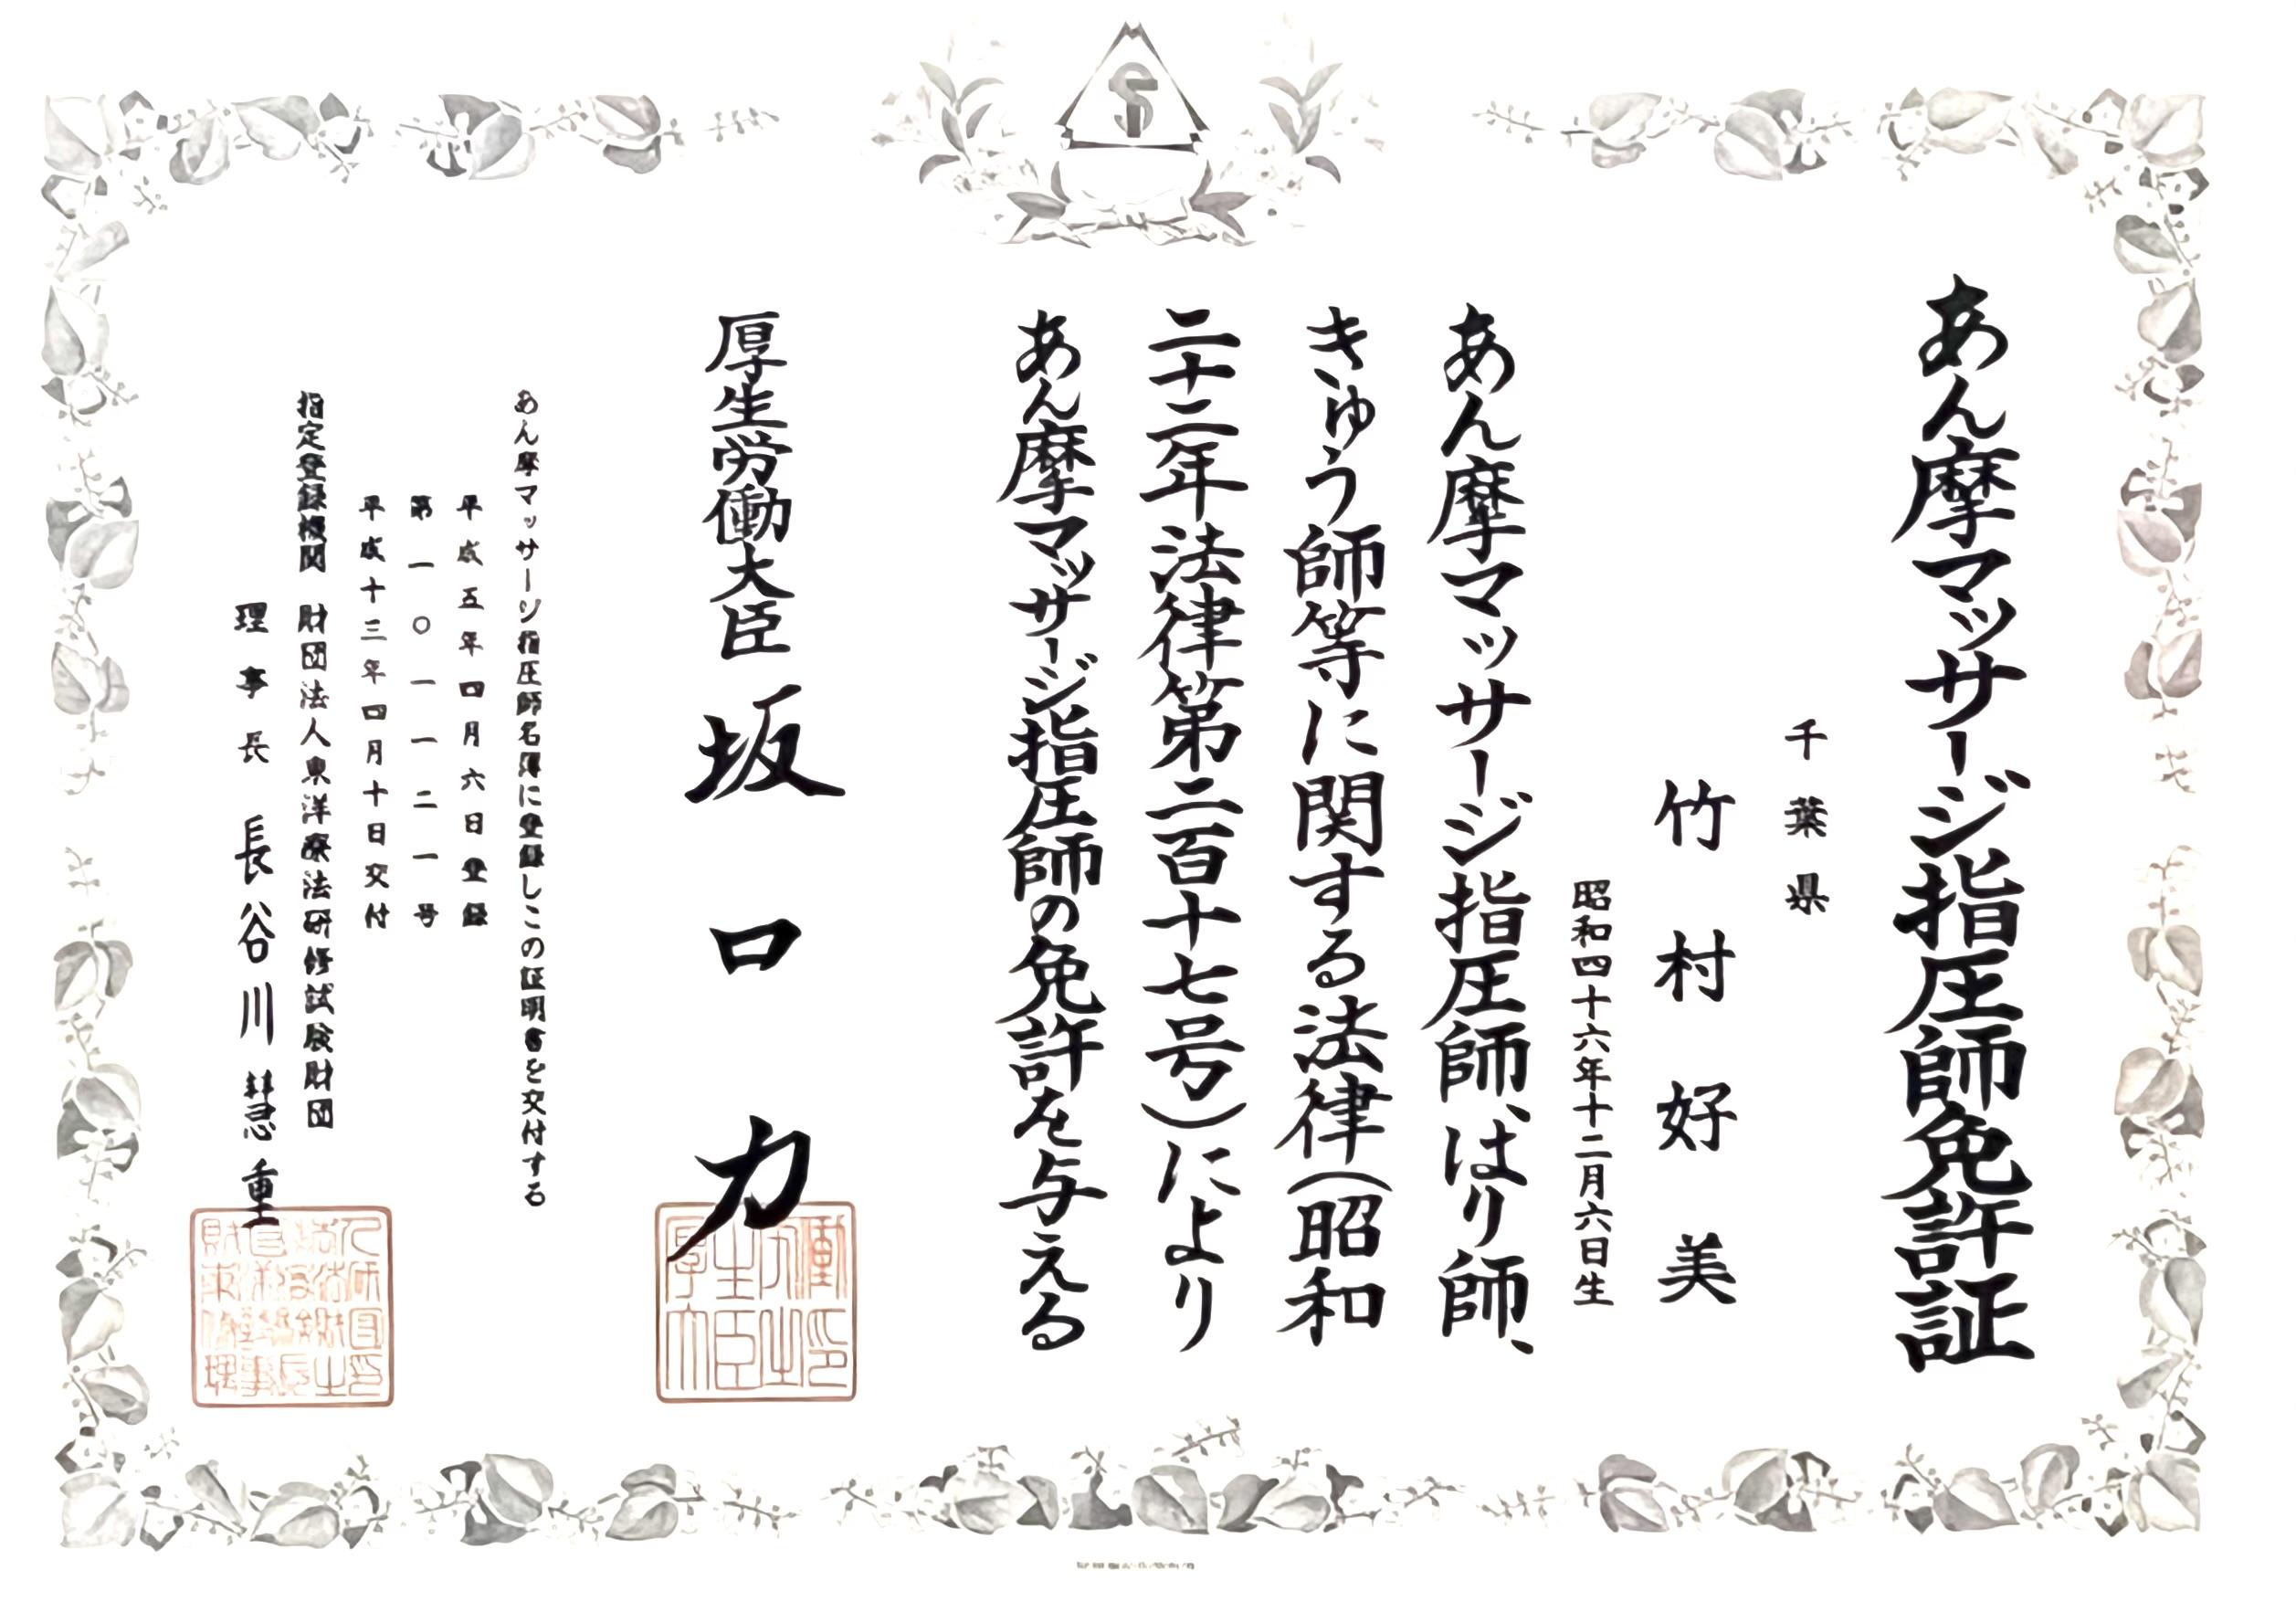 あん摩マッサージ指圧師免許証
千葉県
竹村好美
昭和四十六年十二月六日生
あん摩マッサージ指圧師、はり師、
きゅう師等に関する法律（昭和
二十二年法律第二百十七号）により
あん摩マッサージ指圧師の免許を与える
厚生労働大臣 坂口力
あん摩マッサージ指圧師名簿に登録しこの証明書を交付する
平成五年四月六日登録
第一〇一一二一号
平成十三年四月十日交付
指定登録機関 財団法人東洋療法研修試験財団
理事長 長谷川慧重
厚生労働大臣之印